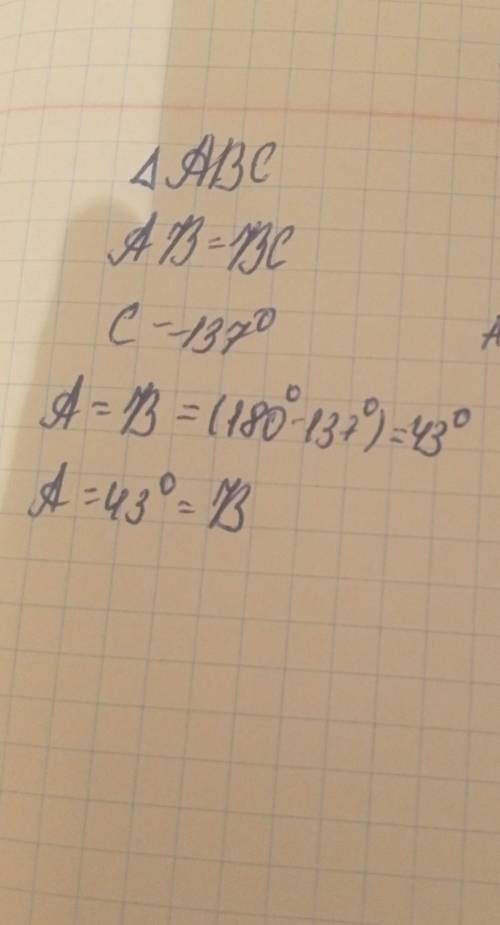 △ ABC
AB = BC
C - 137°
A = B = (180° - 137°) = 43°
A = 43° = B